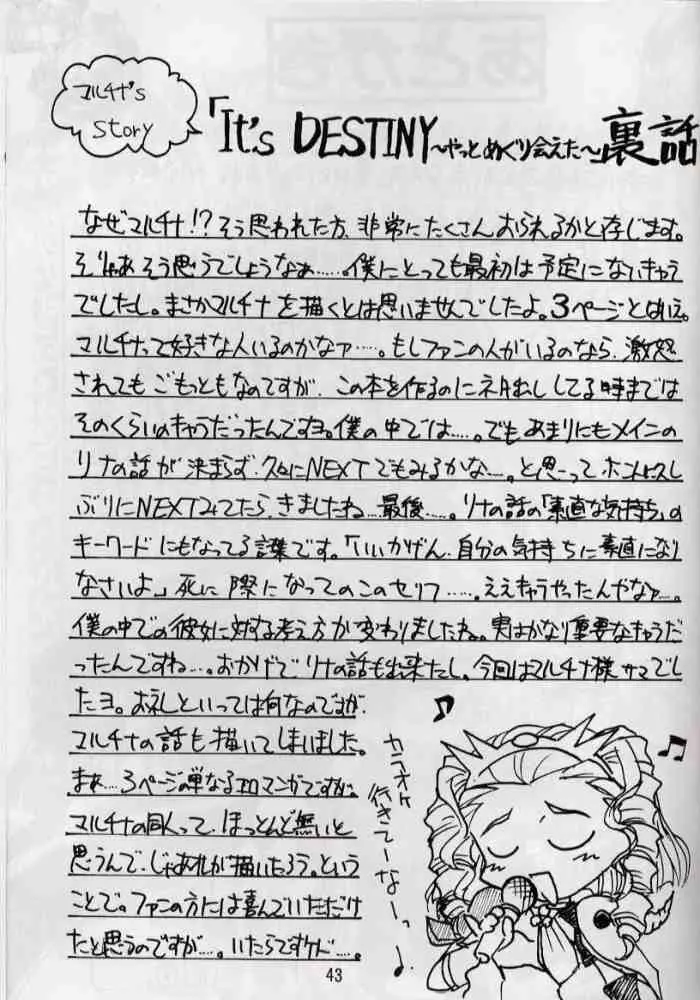 マルチナ's
story
「It's DESTINY〜やっとめぐり会えた〜」裏話
なぜマルチナ!?そう思われた方、非常にたくさんおられるかと存じます。
そりゃあそう思うでしょうなぁ……。僕にとっても最初は予定にないキャラ
でしたし。まさかマルチナを描くとは思いませんでしたよ。3ページとはいえ。
マルチナって好きな人いるのかなァ……。もしファンの人がいるのなら、激怒
されてもごもっともなのですが、この本を作るのにネタ出ししてる時までは
そのくらいのキャラだったんですヨ。僕の中では……。でもあまりにもメインの
リナの話が決まらず、久々にNEXTでもみるかな……。と思ってホント久し
ぶりにNEXTみてたら、きましたね…最後……。リナの話の「素直な気持ち」の
キーワードにもなってる言葉です。「いいかげん、自分の気持ちに素直になり
なさいよ」死に際になってのこのセリフ……。ええキャラやったんやなァ…。
僕の中での彼女に対する考え方が変わりましたね。実はかなり重要なキャラだ
ったんですね…。おかげでリナの話も出来たし。今回はマルチナ様サマでし
たヨ。お礼といっては何なのですが、
マルチナの話も描いてしまいました。
まぁ…3ページの単なるエロマンガですが。
マルチナの同人って、ほっとんど無いと
思うんで、じゃあオレが描いたろう。という
ことで。ファンの方には喜んでいただけ
たと思うのですが…。いたらですケド…。
カラオケ
行きてーなーっ
43